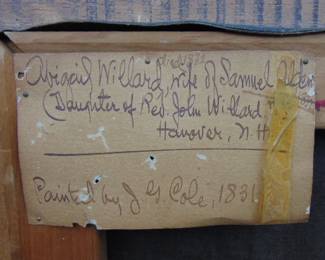 Abigail Willard, wife of Samuel Alden
(Daughter of Rev. John Willard,
Hanover, N.H.
Painted by J. G. Cole, 1831